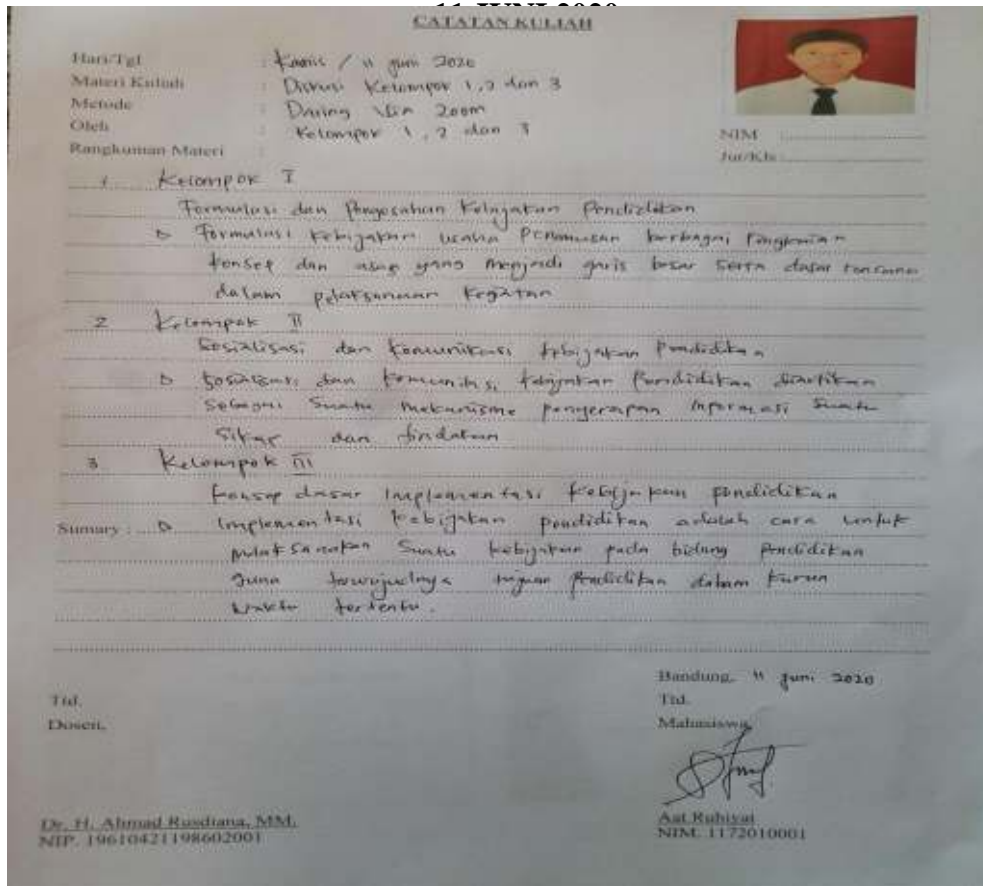 11 JUNI 2020
CATATAN KULIAH
Hari/Tgl : Kamis / 11 Juni 2020
Materi Kuliah : Diskusi Kelompok 1, 2 dan 3
Metode : Daring Via Zoom
Oleh : Kelompok 1, 2 dan 3
Rangkuman Materi :
NIM
Jur/Kls
1 Kelompok I
Formulasi dan Pengesahan Kebijakan Pendidikan
Formulasi Kebijakan usaha Perumusan berbagai rangkaian
konsep dan asas yang menjadi garis besar serta dasar rencana
dalam pelaksanaan kegiatan
2 Kelompok II
Sosialisasi dan komunikasi kebijakan Pendidikan
Sosialisasi dan komunikasi kebijakan Pendidikan diartikan
Sebagai Suatu mekanisme penyerapan informasi Suatu
Sikap dan tindakan
3 Kelompok III
Konsep dasar Implementasi Kebijakan pendidikan
Sumary : Implementasi Kebijakan pendidikan adalah cara untuk
melaksanakan Suatu kebijakan pada bidang Pendidikan
guna terwujudnya tujuan Pendidikan dalam kurun
waktu tertentu.
Bandung, 11 Juni 2020
Ttd. Ttd.
Dosen, Mahasiswa
Dr. H. Ahmad Rusdiana, MM. Aat Ruhiyat
NIP. 19610421198602001 NIM. 1172010001